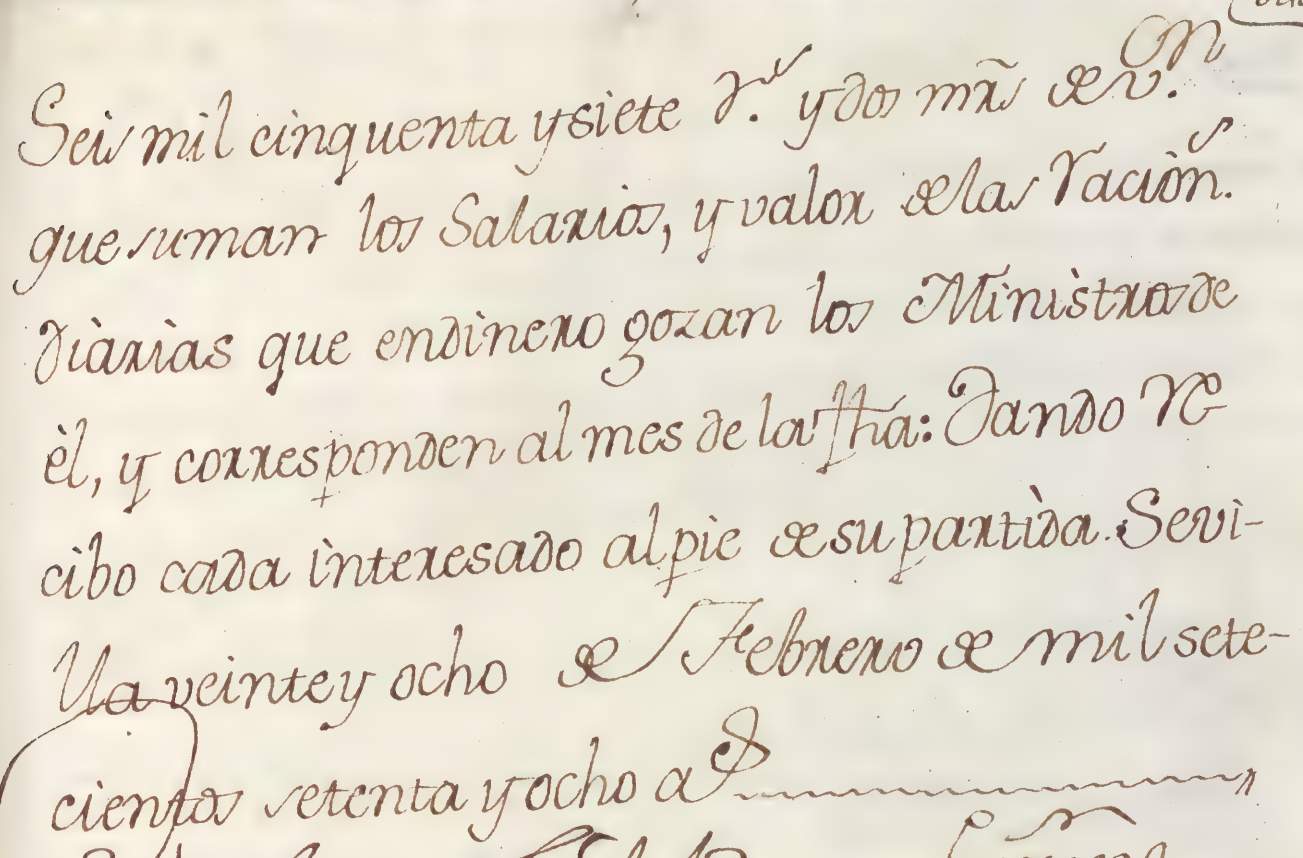 Seis mil cinquenta y siete r.ˢ y dos mr̃s de v.ᵒⁿ
que suman los Salarios, y valor de las racion.ˢ
diarias que en dinero gozan los Ministros de
èl, y corresponden al mes de la fha: Dando re
cibo cada interesado al pie de su partida. Sevi-
lla veinte y ocho de Febrero de mil sete-
cientos setenta y ocho a.ˢ